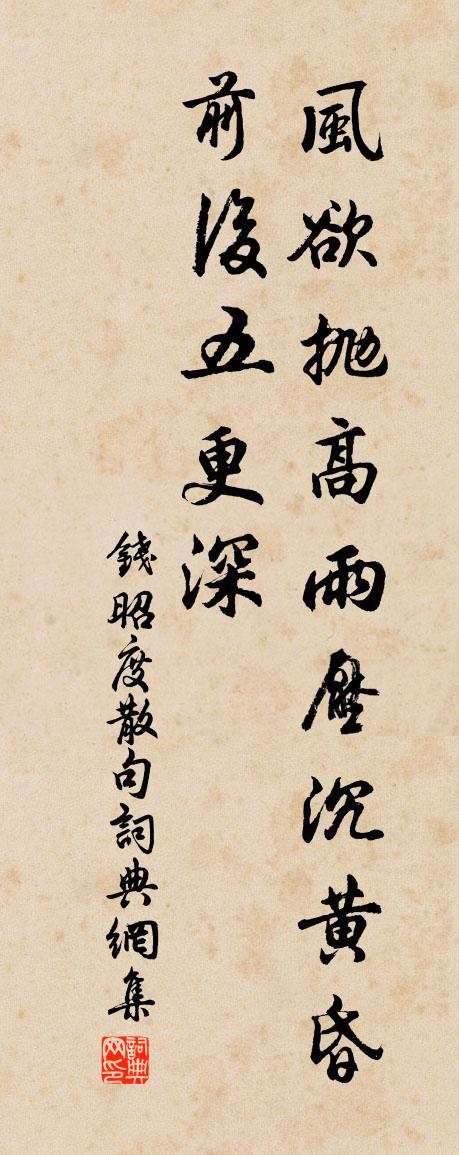 風欲抛高雨壓沉黃昏
前後五更深
錢昭度散句詞典網集
詞典网印